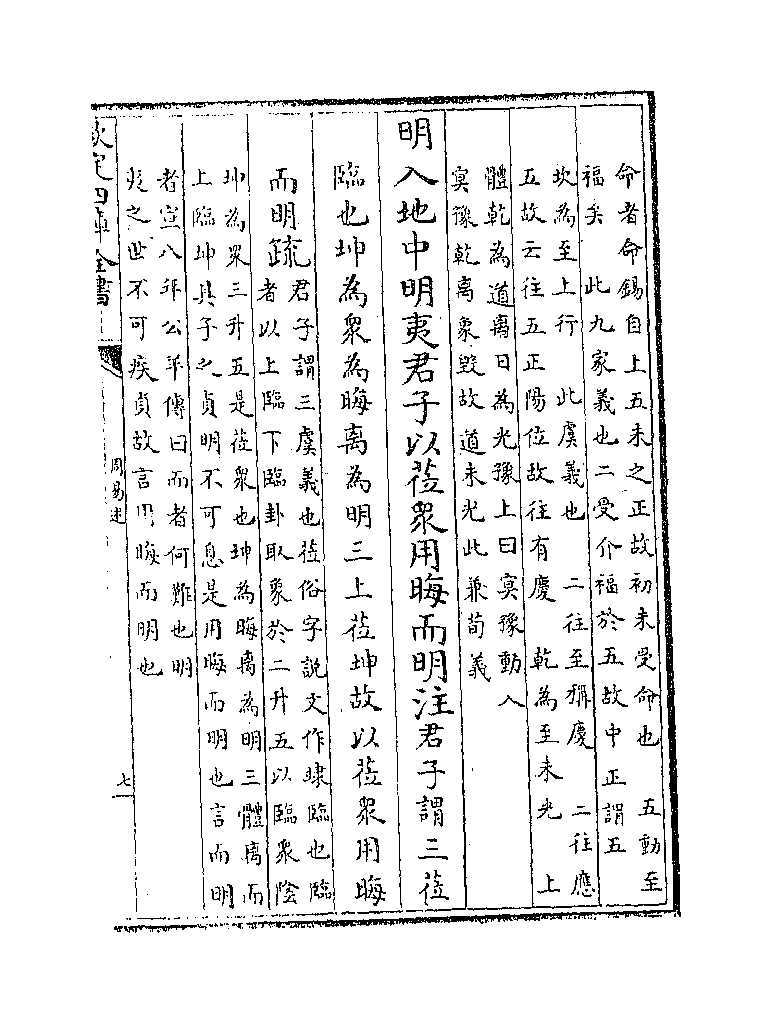 命者命錫自上五未之正故初未受命也　五動至
福矣　此九家義也二受介福於五故中正謂五
坎為至上行　此虞義也　二往至稱慶　二往應
五故云往五正陽位故往有慶　乾為至未光　上
體乾為道离日為光豫上曰冥豫動入
冥豫乾离象毀故道未光此兼荀義
明入地中明夷君子以莅衆用晦而明注君子謂三莅
臨也坤為衆為晦离為明三上莅坤故以莅衆用晦
而明疏
君子謂三虞義也莅俗字說文作䇐臨也臨
者以上臨下臨卦取象於二升五以臨衆陰
坤為衆三升五是莅衆也坤為晦离為明三體离而
上臨坤具子之貞明不可息是用晦而明也言而明
者宣八年公羊傳曰而者何難也明
夷之世不可疾貞故言用晦而明也
欽定四庫全書
周易述
七